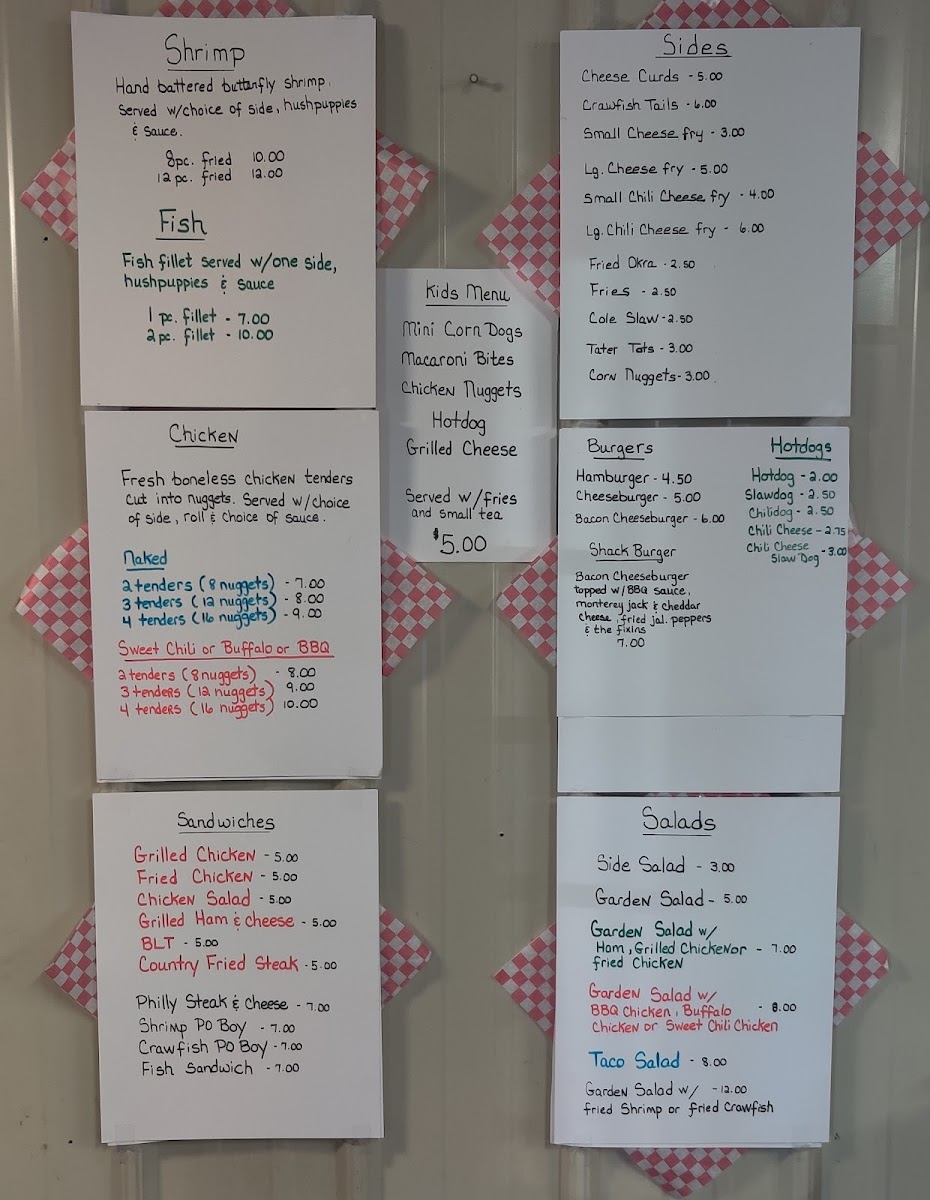 Shrimp
Hand battered butterfly shrimp.
Served w/choice of side, hushpuppies
& sauce.
8pc. fried 10.00
12 pc. fried 12.00
Fish
Fish fillet served w/one side,
hushpuppies & sauce
1 pc. fillet - 7.00
2 pc. fillet - 10.00
Chicken
Fresh boneless chicken tenders
cut into nuggets. Served w/choice
of side, roll & choice of sauce.
Naked
2 tenders (8 nuggets) - 7.00
3 tenders (12 nuggets) - 8.00
4 tenders (16 nuggets) - 9.00
Sweet Chili or Buffalo or BBQ
2 tenders (8 nuggets) - 8.00
3 tenders (12 nuggets) 9.00
4 tenders (16 nuggets) 10.00
Sandwiches
Grilled Chicken - 5.00
Fried Chicken - 5.00
Chicken Salad - 5.00
Grilled Ham & Cheese - 5.00
BLT - 5.00
Country Fried Steak - 5.00
Philly Steak & Cheese - 7.00
Shrimp PO Boy - 7.00
Crawfish PO Boy - 7.00
Fish Sandwich - 7.00
Kids Menu
Mini Corn Dogs
Macaroni Bites
Chicken Nuggets
Hotdog
Grilled Cheese
Served w/fries
and small tea
$5.00
Sides
Cheese Curds - 5.00
Crawfish Tails - 6.00
Small Cheese fry - 3.00
Lg. Cheese fry - 5.00
Small Chili Cheese fry - 4.00
Lg. Chili Cheese fry - 6.00
Fried Okra - 2.50
Fries - 2.50
Cole Slaw - 2.50
Tater Tots - 3.00
Corn Nuggets - 3.00
Burgers
Hamburger - 4.50
Cheeseburger - 5.00
Bacon Cheeseburger - 6.00
Shack Burger
Bacon Cheeseburger
topped w/BBQ sauce,
monterey jack & cheddar
cheese, fried jal. peppers
& the fixins
7.00
Hotdogs
Hotdog - 2.00
Slawdog - 2.50
Chilidog - 2.50
Chili Cheese - 2.75
Chili Cheese
Slaw Dog - 3.00
Salads
Side Salad - 3.00
Garden Salad - 5.00
Garden Salad w/
Ham, Grilled Chicken or - 7.00
fried Chicken
Garden Salad w/
BBQ Chicken, Buffalo - 8.00
Chicken or Sweet Chili Chicken
Taco Salad - 8.00
Garden Salad w/ - 12.00
fried Shrimp or fried Crawfish